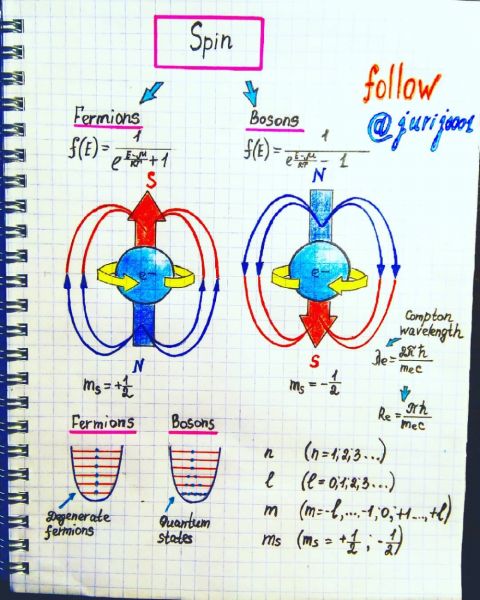 Spin
follow
@jurij0001
Fermions
Bosons
f(E) = 1 / e^(E-μ/kT) + 1
f(E) = 1 / e^(E-μ/kT) - 1
S
N
e-
e-
N
S
ms = +1/2
ms = -1/2
Compton
wavelength
λe = 2πħ/mec
Re = πħ/mec
Fermions
Bosons
Degenerate
fermions
Quantum
states
n (n=1;2;3...)
l (l=0;1;2;3...)
m (m=-l,...-1;0;+1...,+l)
ms (ms=+1/2; -1/2)